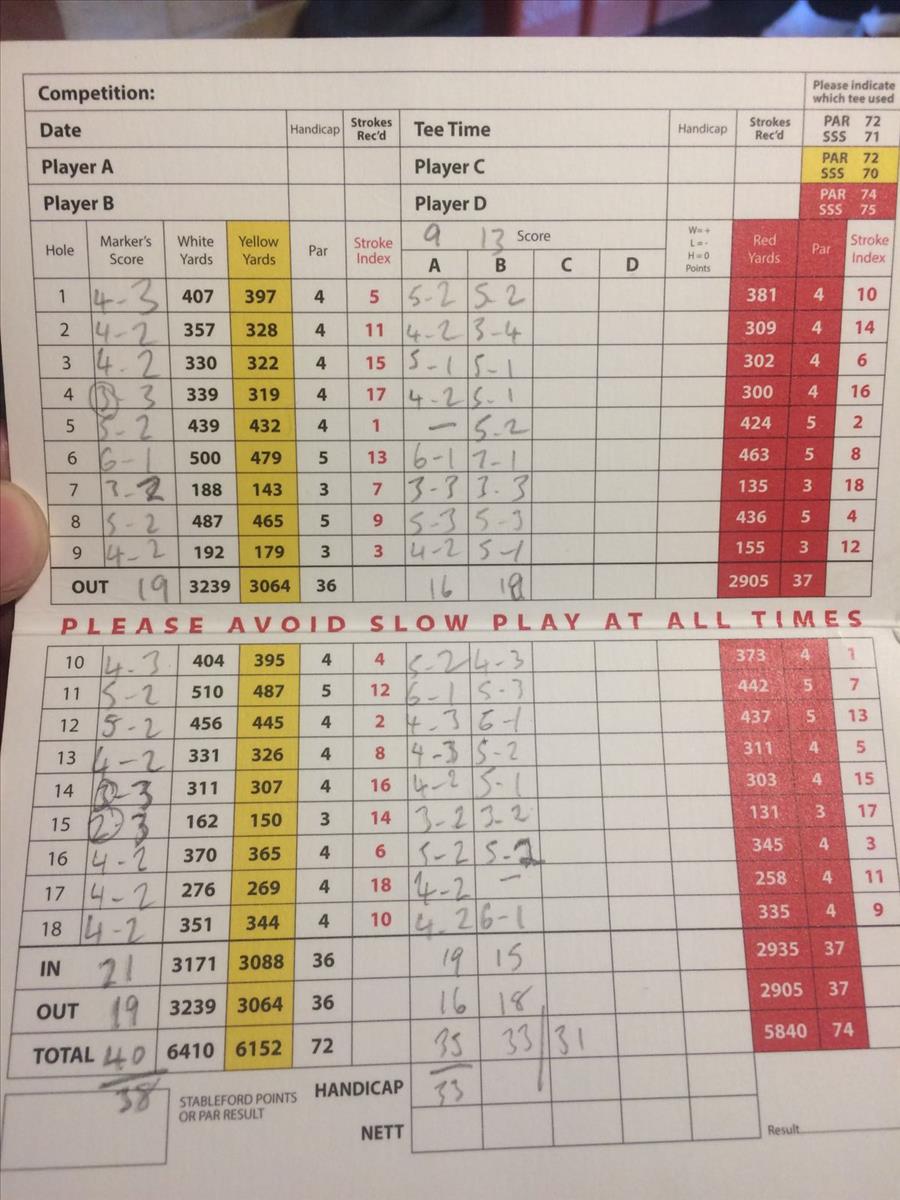 Competition: Please indicate which tee used
Date Handicap Strokes Rec'd Tee Time Handicap Strokes Rec'd PAR 72 SSS 71
Player A Player C PAR 72 SSS 70
Player B Player D PAR 74 SSS 75
Hole Marker's Score White Yards Yellow Yards Par Stroke Index 9 13 Score W=+ L=- H=0 Points Red Yards Par Stroke Index
A B C D
1 4-3 407 397 4 5 5-2 5-2 381 4 10
2 4-2 357 328 4 11 4-2 3-4 309 4 14
3 4-2 330 322 4 15 5-1 5-1 302 4 6
4 3-3 339 319 4 17 4-2 5-1 300 4 16
5 5-2 439 432 4 1 — 5-2 424 5 2
6 6-1 500 479 5 13 6-1 7-1 463 5 8
7 3-2 188 143 3 7 3-3 3-3 135 3 18
8 5-2 487 465 5 9 5-3 5-3 436 5 4
9 4-2 192 179 3 3 4-2 5-1 155 3 12
OUT 19 3239 3064 36 16 18 2905 37
PLEASE AVOID SLOW PLAY AT ALL TIMES
10 4-3 404 395 4 4 5-2 4-3 373 4 1
11 5-2 510 487 5 12 6-1 5-3 442 5 7
12 5-2 456 445 4 2 4-3 6-1 437 5 13
13 4-2 331 326 4 8 4-3 5-2 311 4 5
14 3-3 311 307 4 16 4-2 5-1 303 4 15
15 2-3 162 150 3 14 3-2 3-2 131 3 17
16 4-2 370 365 4 6 5-2 5-2 345 4 3
17 4-2 276 269 4 18 4-2 — 258 4 11
18 4-2 351 344 4 10 4-2 6-1 335 4 9
IN 21 3171 3088 36 19 15 2935 37
OUT 19 3239 3064 36 16 18 2905 37
TOTAL 40 6410 6152 72 35 33/31 5840 74
38 STABLEFORD POINTS OR PAR RESULT HANDICAP 33
NETT Result